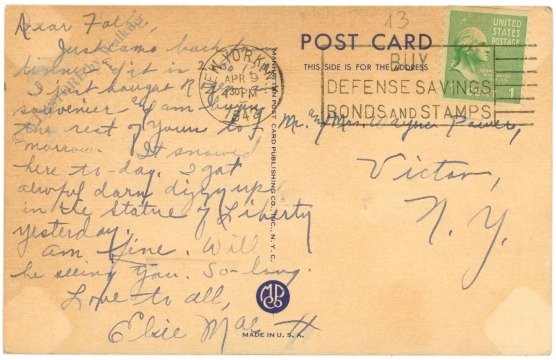 Dear Folks,
Just came back to
dinner & it is
I just bought N. Y.
souvenier & am buying
the rest of yours to-
morrow. It snowed
here to-day. I got
awful darn dizzy up
in the statue of Liberty
yesterday.
Am fine. Will
be seeing you. So-long.
Love to all,
Elsie Mae
MANHATTAN POST CARD PUBLISHING CO., INC., N.Y.C.
MADE IN U.S.A.
13
POST CARD
THIS SIDE IS FOR THE ADDRESS
NEW YORK, N.Y.
APR 9
PM
1942
BUY
DEFENSE SAVINGS
BONDS AND STAMPS
UNITED
STATES
POSTAGE
1
Mr. and Mrs.
Victor,
N. Y.